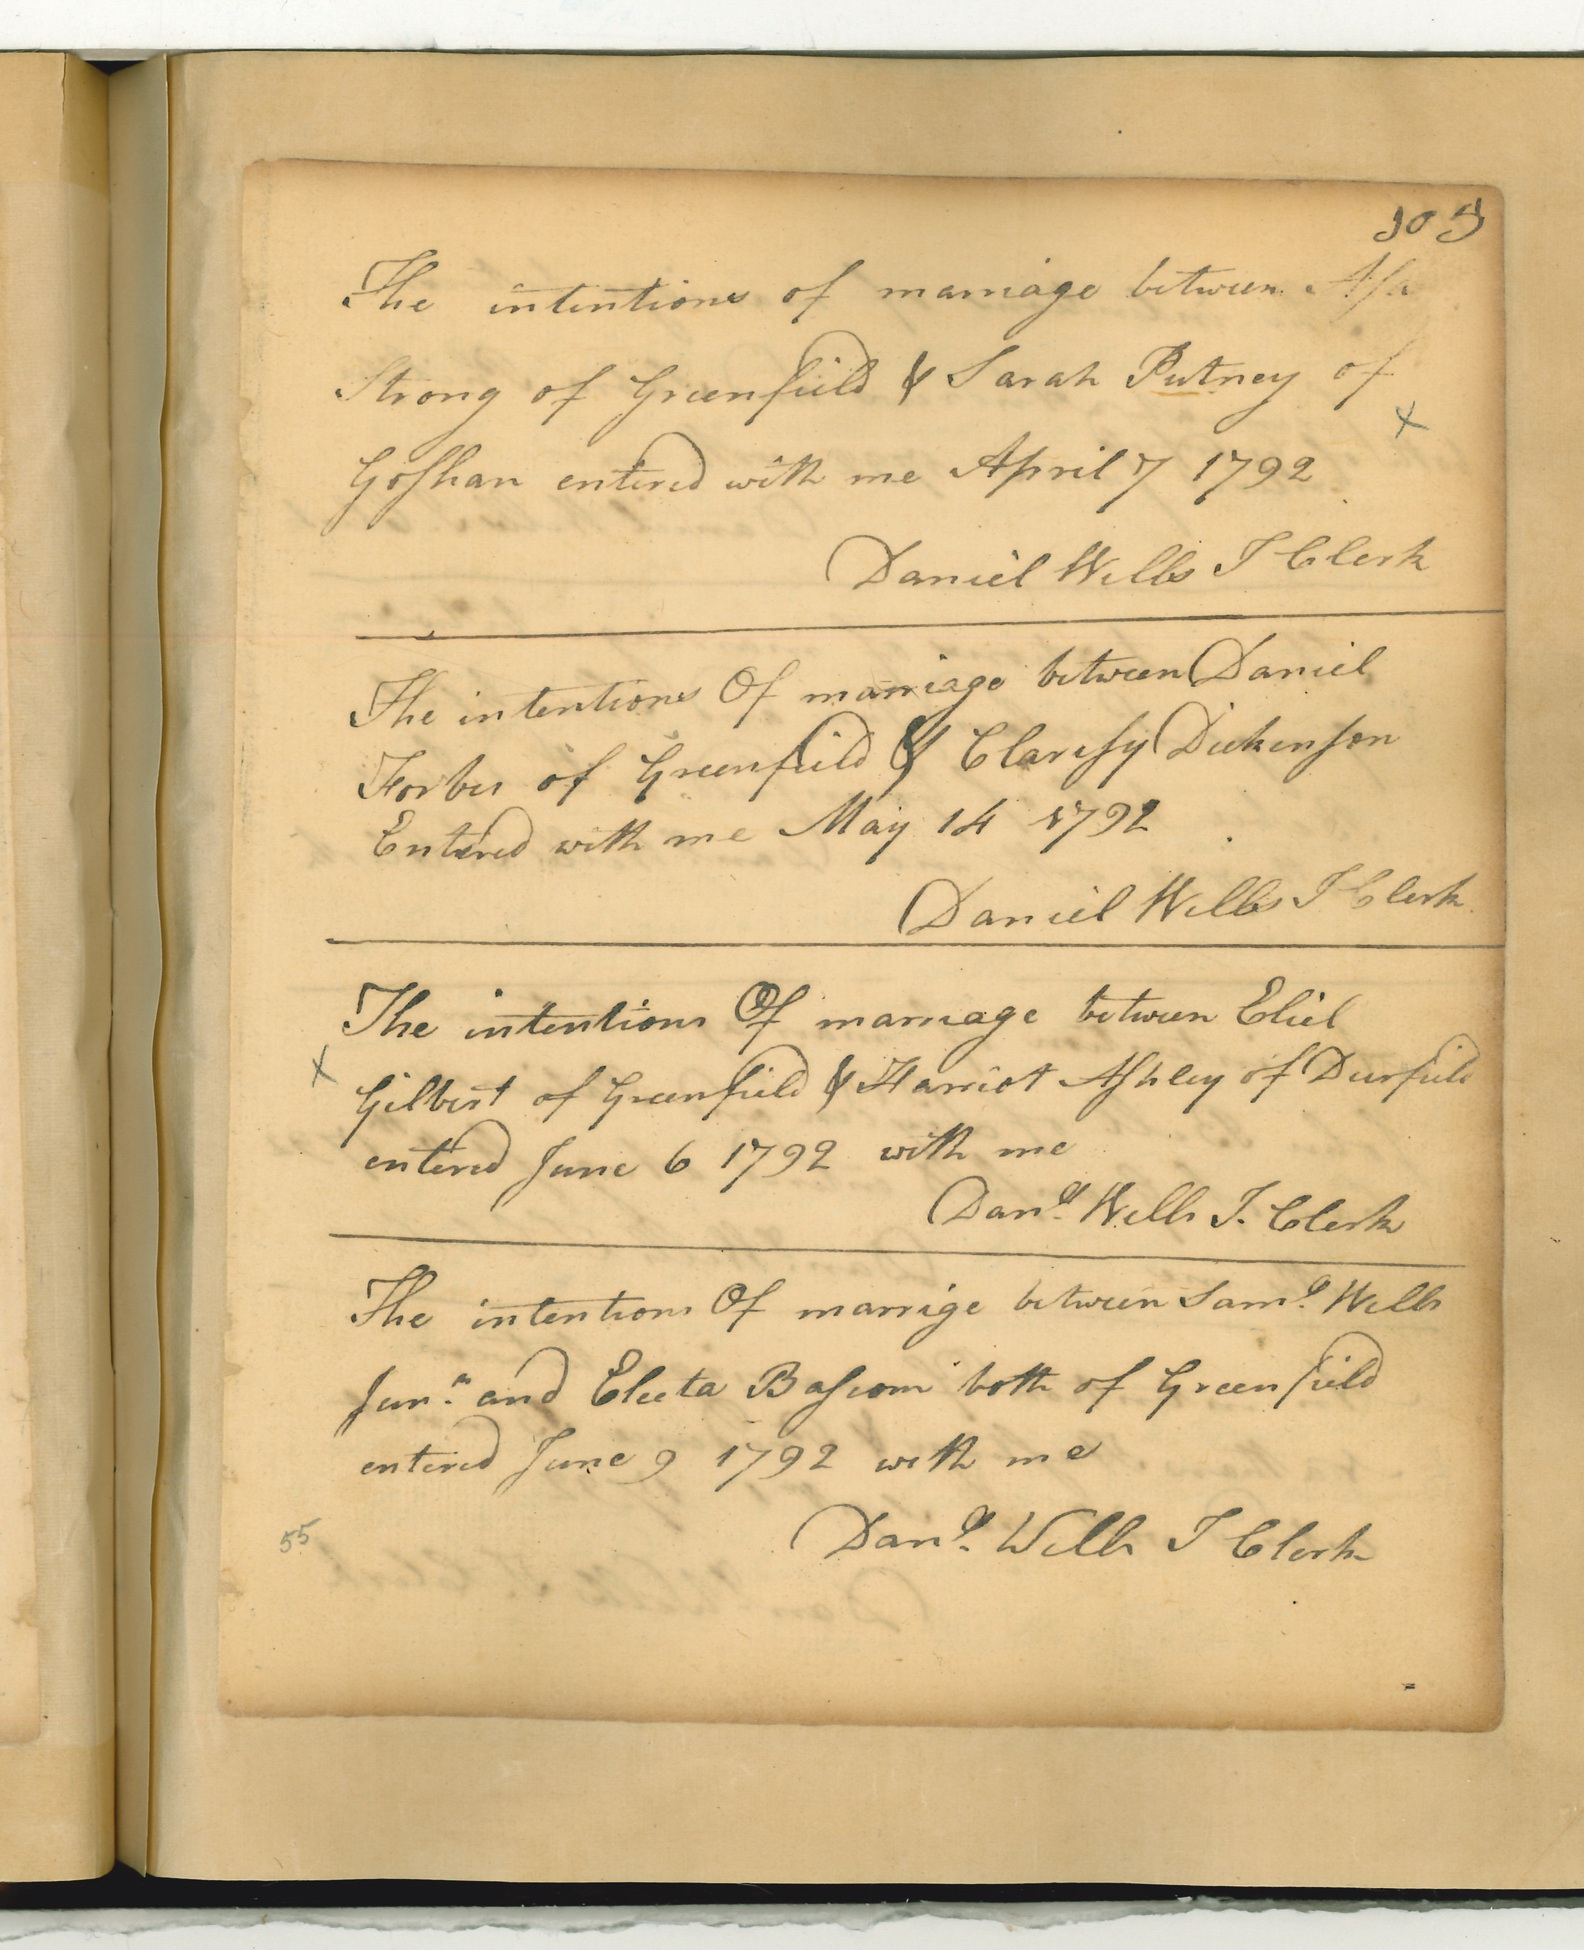 105
The intentions of marriage between
Strong of Greenfield & Sarah Putney of
Goshan entered with me April 7 1792
Daniel Wells T Clerk
The intentions Of marriage between Daniel
Forbes of Greenfield & Claresy Dickenson
Entered with me May 14 1792
Daniel Wells T Clerk
The intentions Of marriage between Eliel
x
Gilbert of Greenfield & Harriot Ashley of Deerfield
entered June 6 1792 with me
Danl. Wells T. Clerk
The intentions Of marrige between Saml. Wells
Junr. and Electa Bascom both of Greenfield
entered June 9 1792 with me
55
Danl. Wells T Clerk